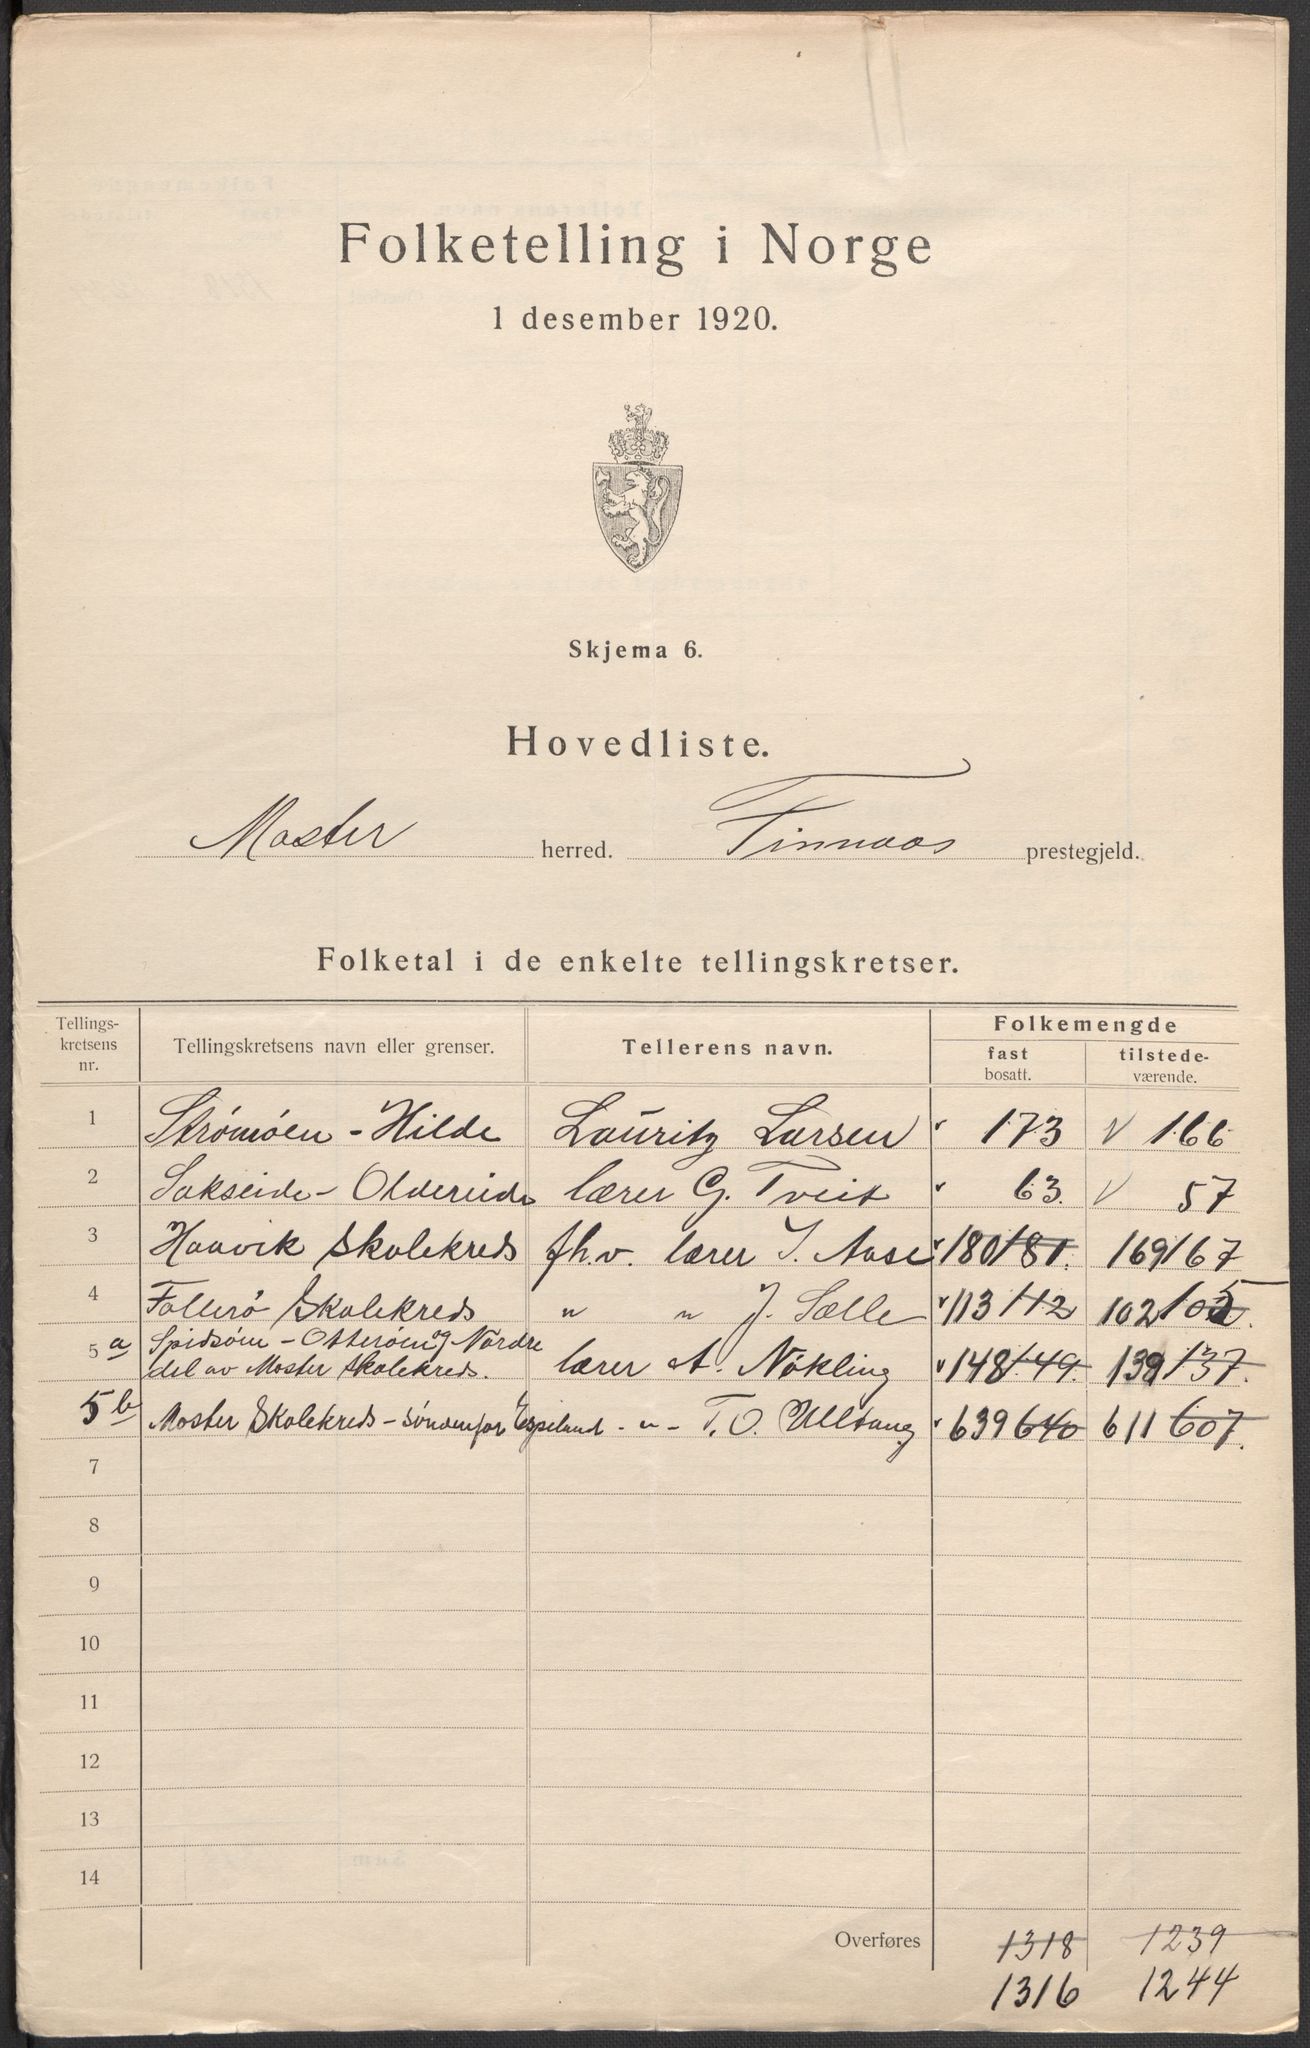 Folketelling i Norge
1 desember 1920.
Skjema 6.
Hovedliste.
Moster herred. Finnaas prestegjeld.
Folketal i de enkelte tellingskretser.
Tellings-kretsens nr. Tellingskretsens navn eller grenser. Tellerens navn. Folkemengde fast bosatt. tilstede-værende.
1 Strømøen - Hilde Lauritz Larsen 173 166
2 Sakseide - Oldereide lærer G. Tveit 63. 57
3 Haavik Skolekreds fh.v. lærer I. Aase 180 181. 169 167
4 Follerö Skolekreds " " J. Sælle 113 112 102 105
5 a Spidsöen - Otteröen og Nordre
del av Moster Skolekreds. lærer A. Nökling 148 149. 139 137.
5 b Moster Skolekreds - sönnenfor Espeland - " - T. O. Ulltang 639 640 611 607.
7
8
9
10
11
12
13
14
Overføres 1318 1239
1316 1244